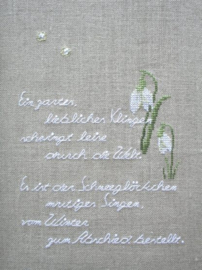 Ein zartes,
liebliches Klingen
schwingt leise
durch die Welt.
Es ist der Schneeglöckchen
mutiges Singen,
vom Winter
zum Abschied bestellt.